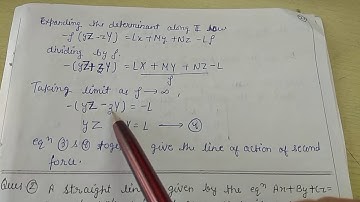 Expanding the determinant along I row
-ρ(yZ-zY) = Lx+My+Nz-Lρ
dividing by ρ.
-(yZ+zY) = LX+MY+NZ-L
ρ
Taking limit as ρ→∞,
-(yZ-zY) = -L
yZ Y = L → (4)
eqⁿ (3) & (4) together give the line of action of second
force.
Ques (2) A straight line given by the eqⁿ Ax+By+Cz=